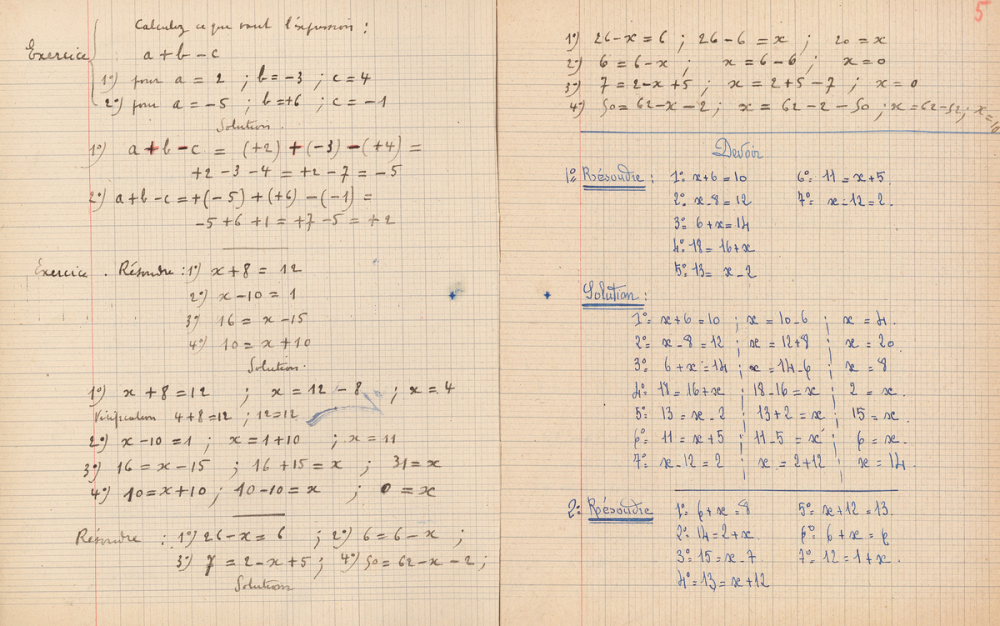 Calculez ce que vaut l'expression :
Exercice
a + b - c
1º) pour a = 2 ; b = -3 ; c = 4
2º) pour a = -5 ; b = +6 ; c = -1
Solution.
1º) a + b - c = (+2) + (-3) - (+4) =
+2 - 3 - 4 = +2 - 7 = -5
2º) a + b - c = +(-5) + (+6) - (-1) =
-5 + 6 + 1 = +7 - 5 = +2
Exercice . Résoudre : 1º) x + 8 = 12
2º) x - 10 = 1
3º) 16 = x - 15
4º) 10 = x + 10
Solution.
1º) x + 8 = 12 ; x = 12 - 8 ; x = 4
Vérification 4 + 8 = 12 ; 12 = 12
2º) x - 10 = 1 ; x = 1 + 10 ; x = 11
3º) 16 = x - 15 ; 16 + 15 = x ; 31 = x
4º) 10 = x + 10 ; 10 - 10 = x ; 0 = x
Résoudre : 1º) 26 - x = 6 ; 2º) 6 = 6 - x ;
3º) 7 = 2 - x + 5 ; 4º) 50 = 62 - x - 2 ;
Solution
5
1º) 26 - x = 6 ; 26 - 6 = x ; 20 = x
2º) 6 = 6 - x ; x = 6 - 6 ; x = 0
3º) 7 = 2 - x + 5 ; x = 2 + 5 - 7 ; x = 0
4º) 50 = 62 - x - 2 ; x = 62 - 2 - 50 ; x = 62 - 52 ; x = 10
Devoir
1º Résoudre : 1º x + 6 = 10 6º 11 = x + 5.
2º x - 8 = 12 7º x - 12 = 2.
3º 6 + x = 14
4º 18 = 16 + x
5º 13 = x - 2
Solution :
1º x + 6 = 10 ; x = 10 - 6 ; x = 4.
2º x - 8 = 12 ; x = 12 + 8 ; x = 20.
3º 6 + x = 14 ; x = 14 - 6 ; x = 8
4º 18 = 16 + x ; 18 - 16 = x ; 2 = x
5º 13 = x - 2 ; 13 + 2 = x ; 15 = x.
6º 11 = x + 5 ; 11 - 5 = x ; 6 = x.
7º x - 12 = 2 ; x = 2 + 12 ; x = 14.
2º Résoudre 1º 6 + x = 8 5º x + 12 = 13.
2º 14 = 2 + x 6º 6 + x = 6
3º 15 = x - 7 7º 12 = 1 + x.
4º 13 = x + 12